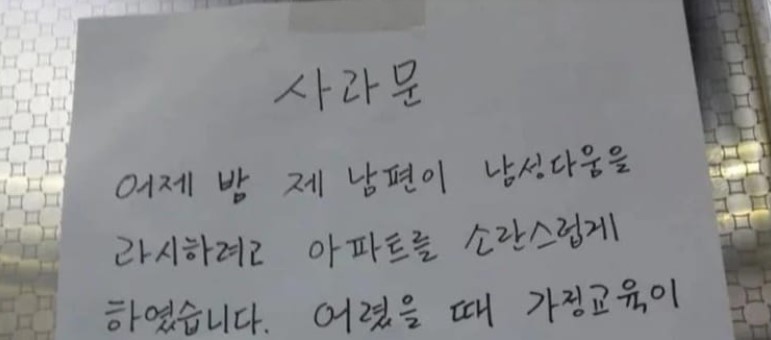 사과문
어제 밤 제 남편이 남성다움을
과시하려고 아파트를 소란스럽게
하였습니다. 어렸을 때 가정교육이